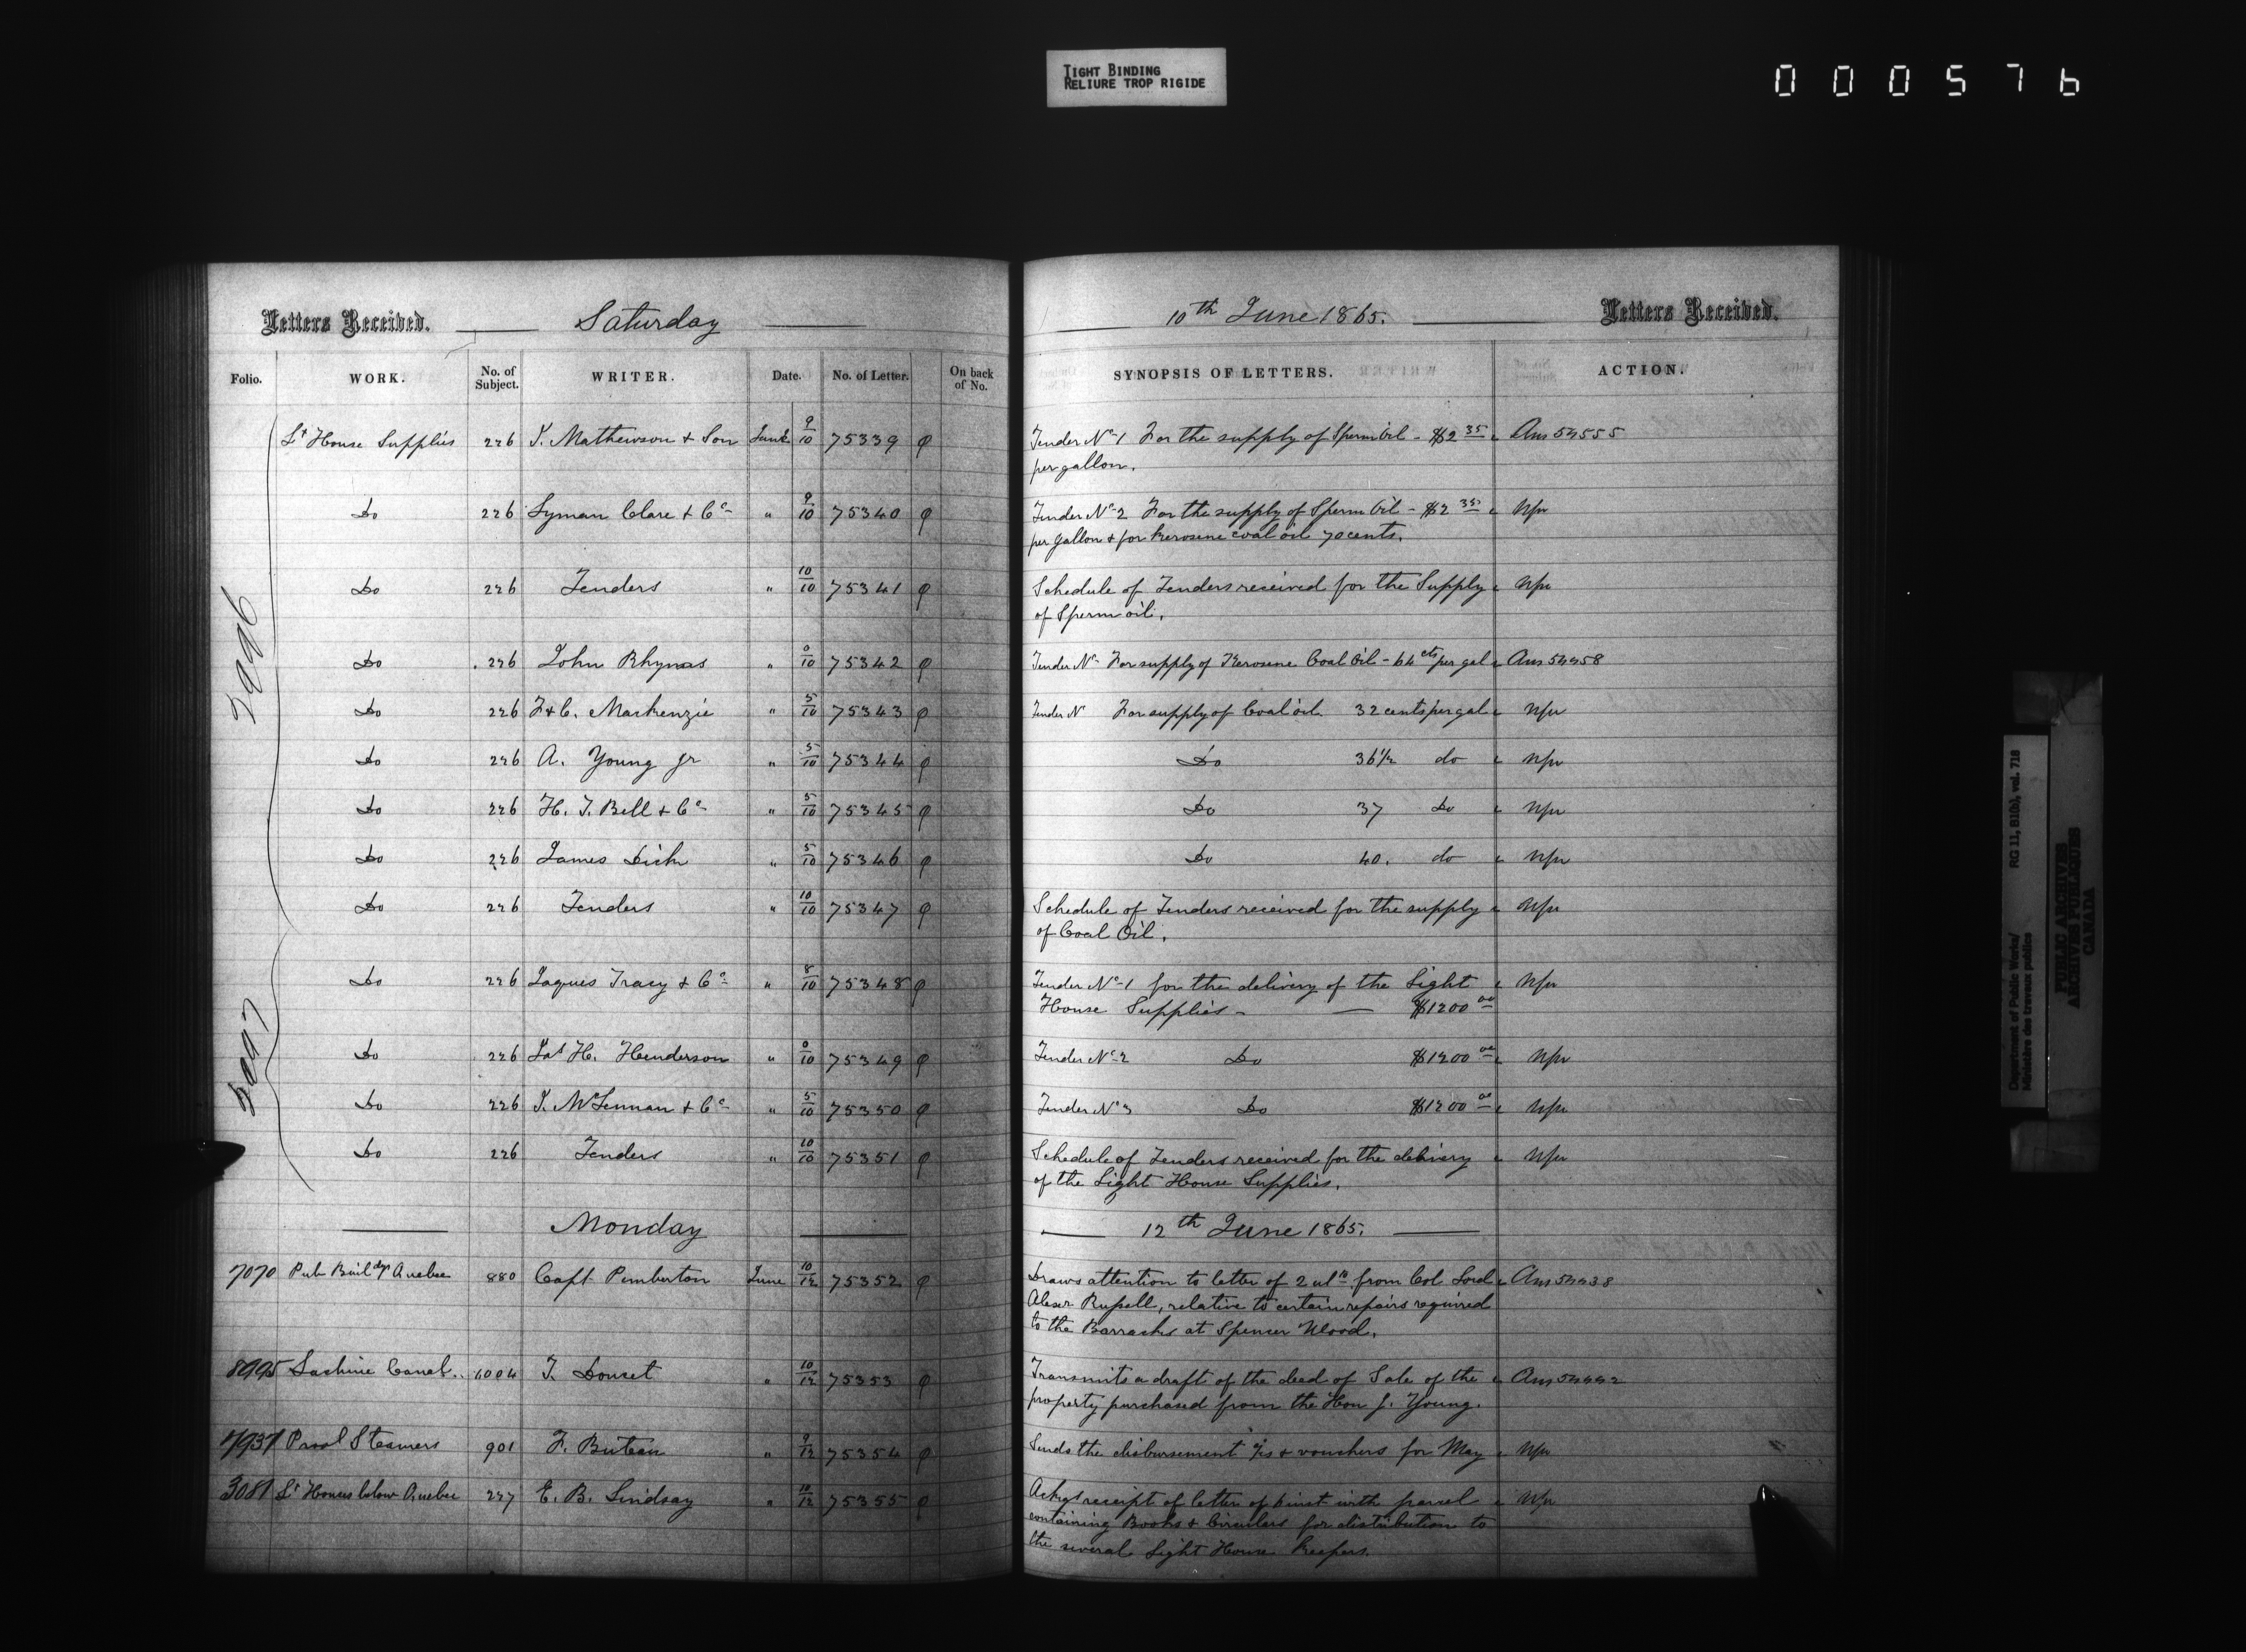 TIGHT BINDING
RELIURE TROP RIGIDE
000576
Letters Received. Saturday
Folio. WORK. No. of Subject. WRITER. Date. No. of Letter. On back of No.
Lt House Supplies 226 J. Mathewson & Son June 9/10 75339
Do 226 Lyman Clare & Co " 9/10 75340
Do 226 Tenders " 10/10 75341
Do 226 John Rhynas " 75342
Do 226 F & C. Mackenzie " 5/10 75343
Do 226 A. Young Jr " 5/10 75344
Do 226 H. J. Bell & Co " 5/10 75345
Do 226 James Dick " 5/10 75346
Do 226 Tenders " 10/10 75347
Do 226 Jaques Tracy & Co " 8/10 75348
Do 226 Jas H. Henderson " 75349
Do 226 J. McLennan & Co " 5/10 75350
Do 226 Tenders " 10/10 75351
Monday
7070 Pub Buildgs Quebec 880 Capt Pemberton June 10/12 75352
8995 Lachine Canal 1004 T. Doucet " 10/12 75353
7937 Provl Steamers 901 F. Buteau " 9/12 75354
3081 Lt Houses below Quebec 227 E. B. Lindsay " 10/12 75355
10th June 1865. Letters Received.
SYNOPSIS OF LETTERS. ACTION.
Tender No 1 For the supply of Sperm Oil - $2 35 Ans 54555
per gallon.
Tender No 2 For the supply of Sperm Oil - $2 35 Nfw
per gallon & for Kerosene coal oil 70 cents.
Schedule of Tenders received for the Supply Nfw
of Sperm oil.
Tender No For supply of Kerosene Coal Oil - 64 cts per gal Ans 54458
Tender N For supply of Coal oil. 32 cents per gal Nfw
Do 36 1/2 do Nfw
Do 37 Do Nfw
Do 40. do Nfw
Schedule of Tenders received for the supply Nfw
of Coal Oil.
Tender No 1 for the delivery of the Light Nfw
House Supplies - $1200 00
Tender No 2 Do $1200 00 Nfw
Tender No 3 Do $1200 00 Nfw
Schedule of Tenders received for the delivery Nfw
of the Light House Supplies.
12th June 1865.
Draws attention to letter of 2 ulto from Col Lord Ans 54438
Alexr Russell, relative to certain repairs required
to the Barracks at Spencer Wood.
Transmits a draft of the deed of Sale of the Ans 54442
property purchased from the Hon J. Young.
Sends the disbursement a/cs & vouchers for May Nfw
Ackgs receipt of letter of inst with parcel Nfw
containing Books & Circulars for distribution to
the several Light House Keepers.
Department of Public Works/ RG 11, B1(b), vol. 718
Ministère des travaux publics
PUBLIC ARCHIVES
ARCHIVES PUBLIQUES
CANADA